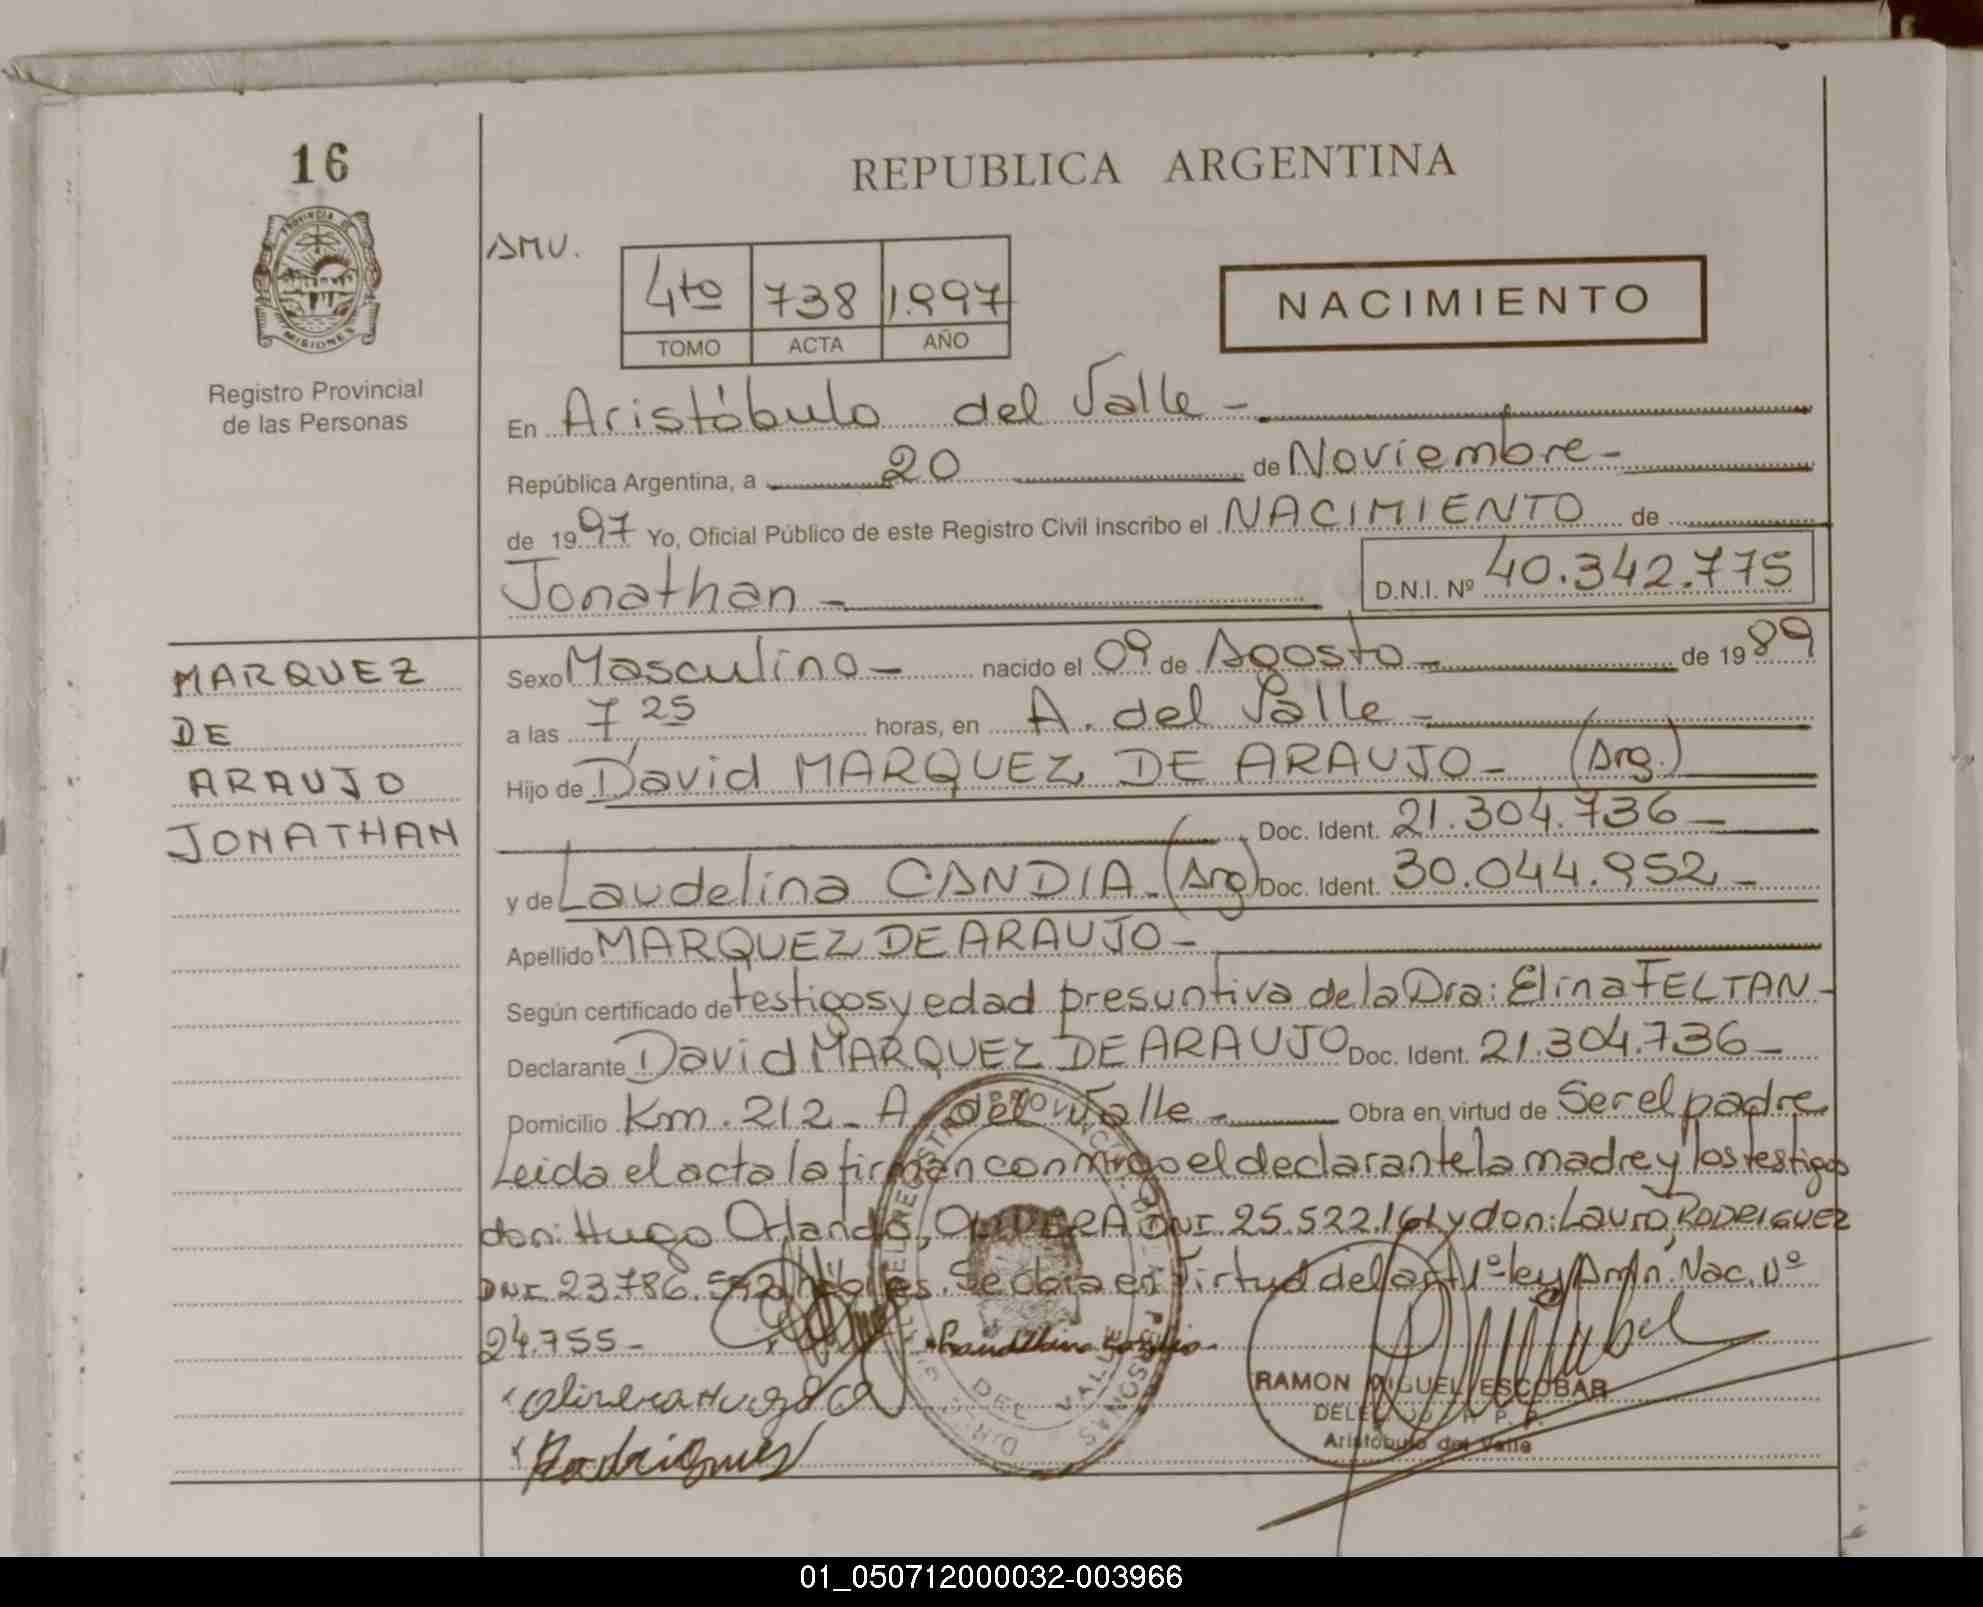 16
REPUBLICA ARGENTINA
PROVINCIA DE
MISIONES
Registro Provincial
de las Personas
4to 738 1.997
TOMO ACTA AÑO
NACIMIENTO
En Aristóbulo del Valle -
República Argentina, a 20 de Noviembre -
de 1997 Yo, Oficial Público de este Registro Civil inscribo el NACIMIENTO de
Jonathan - D.N.I. Nº 40.342.775
MARQUEZ
DE
ARAUJO
JONATHAN
Sexo Masculino - nacido el 09 de Agosto - de 1989
a las 7 25 horas, en A. del Valle -
Hijo de David MARQUEZ DE ARAUJO - (Arg.)
Doc. Ident. 21.304.736 -
y de Laudelina CANDIA - (Arg) Doc. Ident. 30.044.952 -
Apellido MARQUEZ DE ARAUJO -
Según certificado de testigos y edad presuntiva de la Dra: Elina FELTAN -
Declarante David MARQUEZ DE ARAUJO Doc. Ident. 21.304.736 -
Domicilio Km. 212 - A. del Valle - Obra en virtud de Ser el padre
Leida el acta la firman conmigo el declarante la madre y los testigos
don: Hugo Orlando, OLIVERA DNI 25.522.164 y don: Lauro, RODRIGUEZ
DNI 23.786. hábiles. Se labra en virtud del art 1º ley Amn. Nac. Nº
24.755 -
Olivera Hugo O
Rodrigues
RAMON MIGUEL ESCOBAR
DELEGADO R. P. P.
Aristóbulo del Valle
DEL VALLE
01_050712000032-003966